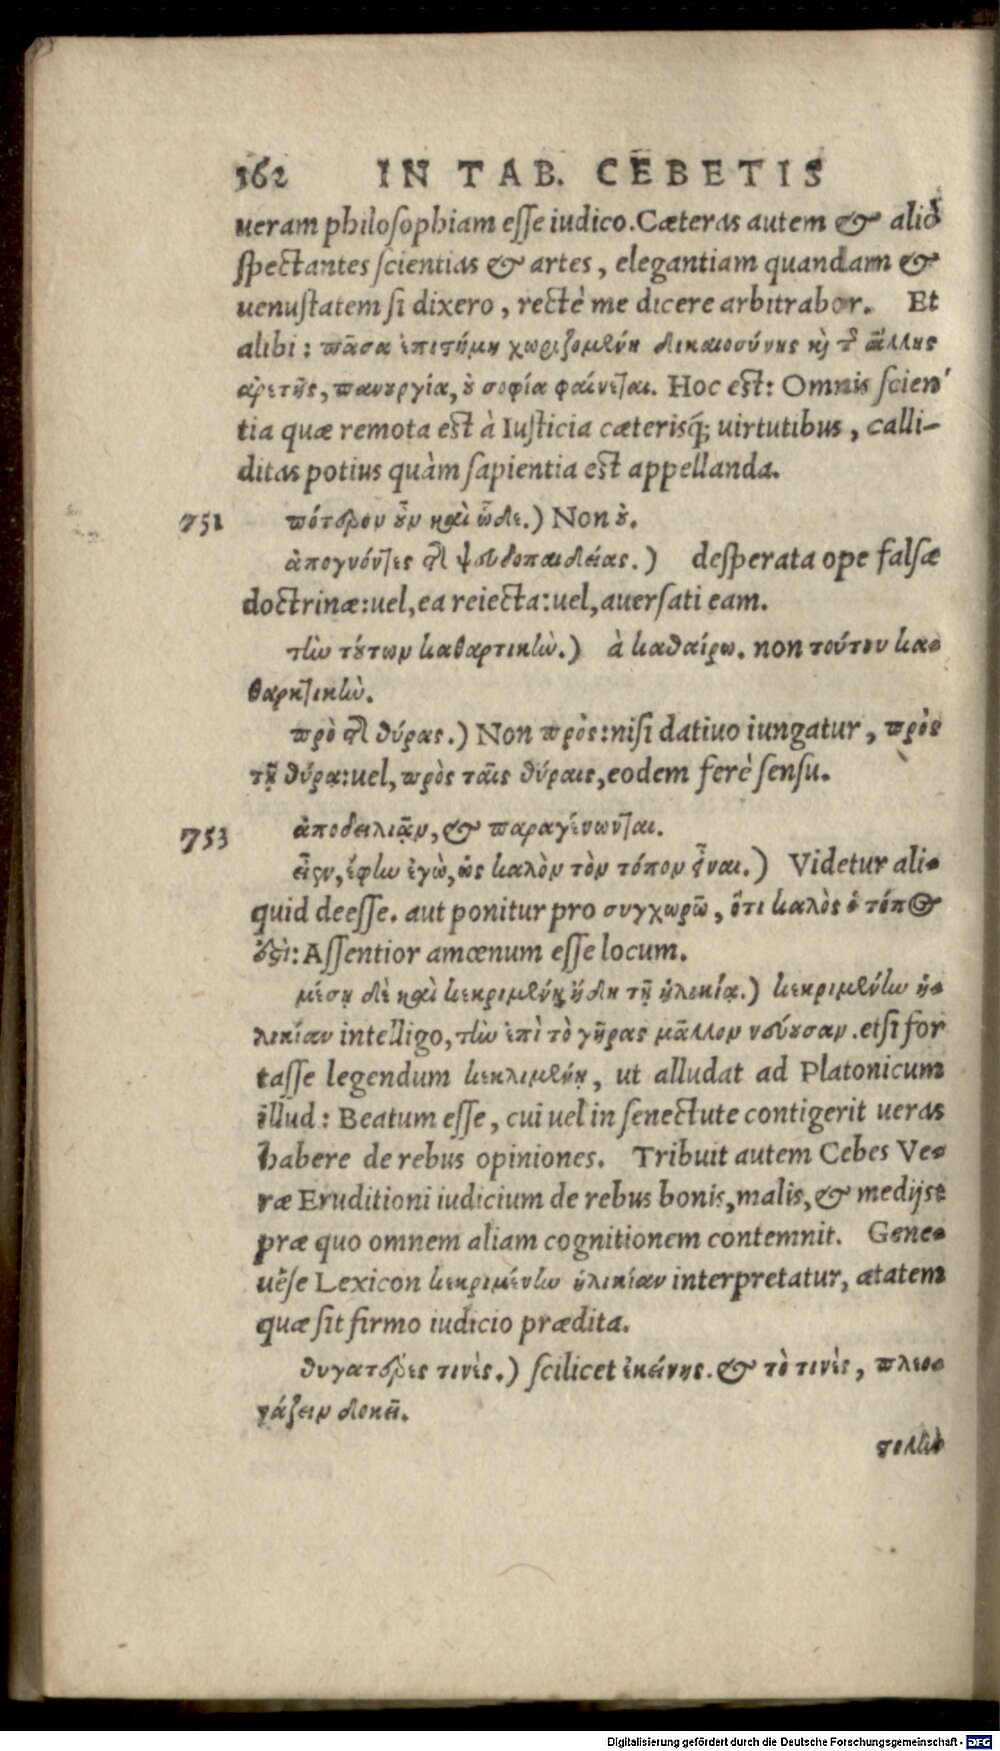 362 IN TAB. CEBETIS
ueram philosophiam esse iudico. Cæteras autem & aliò
spectantes scientias & artes, elegantiam quandam &
uenustatem si dixero, rectè me dicere arbitrabor. Et
alibi: πᾶσα ἐπιστήμη χωριζομένη δικαιοσύνης καὶ τῆς ἄλλης
ἀρετῆς, πανουργία, οὐ σοφία φαίνεται. Hoc est: Omnis scien
tia quæ remota est à Iusticia cæterisq́; uirtutibus, calli-
ditas potius quàm sapientia est appellanda.
751 πότερον οὖν καὶ ὧδε.) Non οὐ.
ἀπογνόντες τῆς ψευδοπαιδείας.) desperata ope falsæ
doctrinæ: uel, ea reiecta: uel, auersati eam.
τὴν τούτων καθαρτικὴν.) à καθαίρω. non τούτου κα-
θαρκτικὴν.
πρὸ τῆς θύρας.) Non πρὸς: nisi datiuo iungatur, πρὸς
τῇ θύρᾳ: uel, πρὸς ταῖς θύραις, eodem ferè sensu.
753 ἀποδειλιᾷν, & παραγίνωνται.
εἶεν, ἔφην ἐγὼ, ὡς καλὸν τὸν τόπον εἶναι.) Videtur ali-
quid deesse. aut ponitur pro συγχωρῶ, ὅτι καλὸς ὁ τόπος
ἐστὶ: Assentior amœnum esse locum.
μέσῃ δὲ καὶ κεκριμένῃ ἤδη τῇ ἡλικίᾳ.) κεκριμένην ἡ-
λικίαν intelligo, τὴν ἐπὶ τὸ γῆρας μᾶλλον νεύουσαν. etsi for
tasse legendum κεκλιμένῃ, ut alludat ad Platonicum
illud: Beatum esse, cui uel in senectute contigerit ueras
habere de rebus opiniones. Tribuit autem Cebes Ve-
ræ Eruditioni iudicium de rebus bonis, malis, & medijs:
præ quo omnem aliam cognitionem contemnit. Gene-
uẽse Lexicon κεκριμένην ἡλικίαν interpretatur, ætatem
quæ sit firmo iudicio prædita.
θυγατέρες τινὲς.) scilicet ἐκείνης. & τὸ τινὲς, πλεο-
νάζειν δοκεῖ.
στολὴν
Digitalisierung gefördert durch die Deutsche Forschungsgemeinschaft - DFG